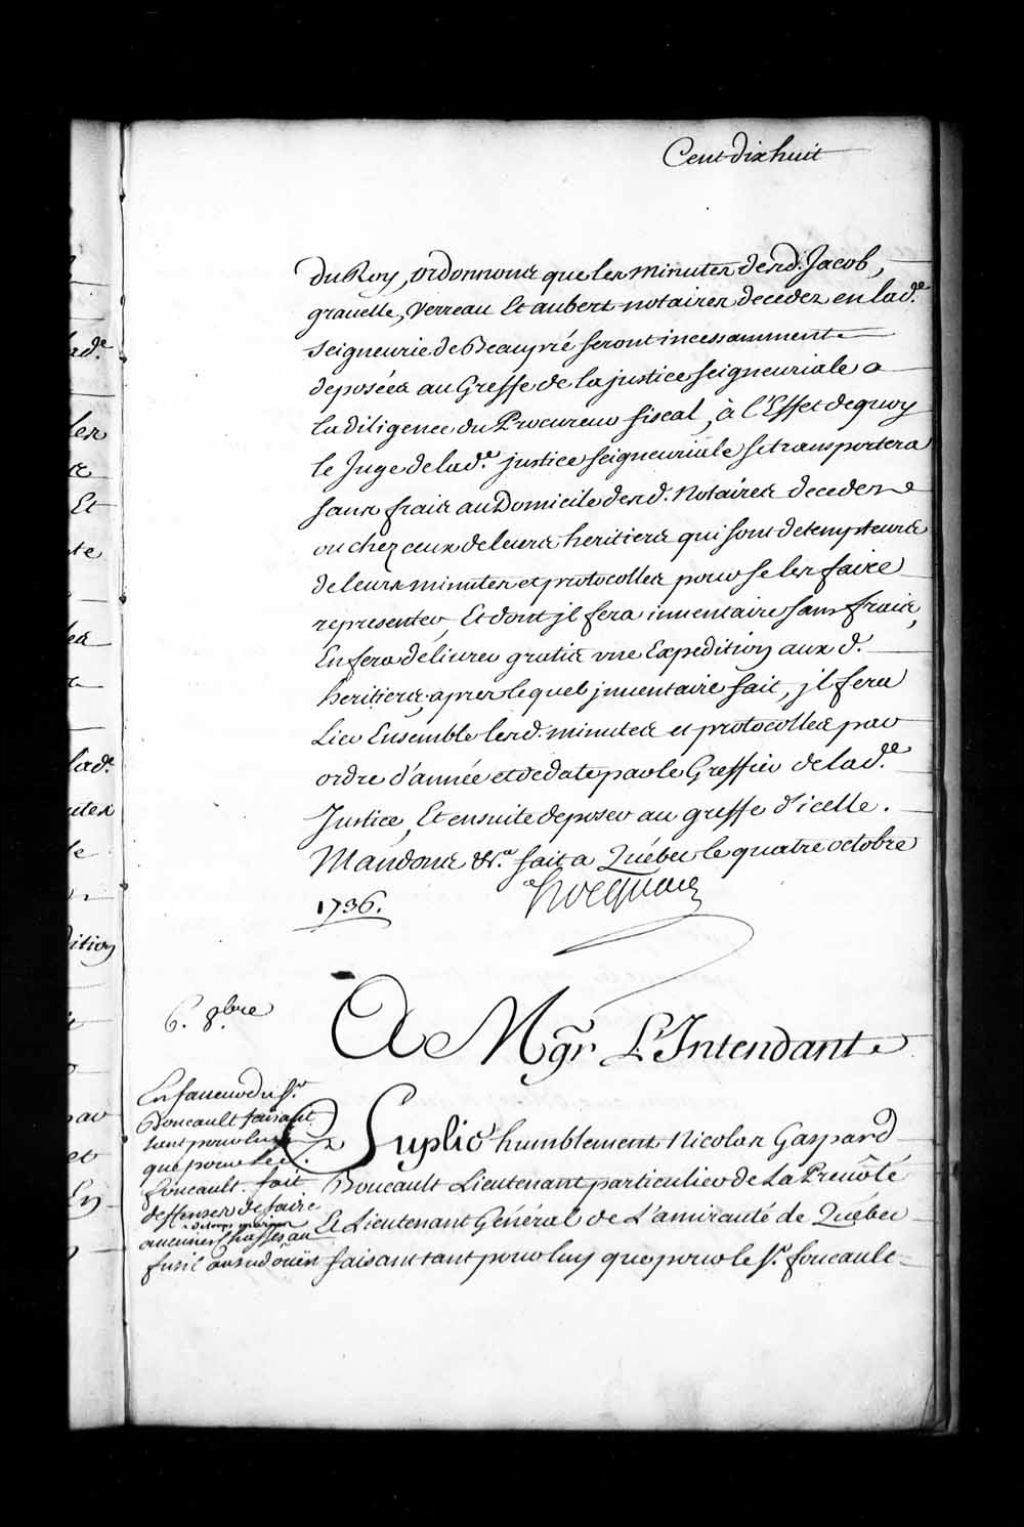 Cent dix huit
du Roy, ordonnons que les minutes desd. Jacob,
gravelle, Verreau Et aubert notaires decedez en lad.e
seigneurie de Beaupré seront incessamment
deposées au Greffe de la justice seigneuriale a
la diligence du Procureur fiscal, à l'Effet de quoy
le Juge de lad.e justice seigneuriale se transportera
sans frais au Domicile desd. Notaires decedez
ou chez ceux de leurs heritiers qui sont detempteurs
de leurs minutes et protocolles pour se les faire
representer, Et dont jl fera inventaire sans frais,
En fera delivrer gratis une Expedition aux d.
heritiers, apres lequel jnventaire fait, jl fera
Lier Ensemble lesd. minutes et protocolles par
ordre d'année et de date par le Greffier de lad.e
Justice, Et ensuite deposer au greffe d'icelle.
Mandons &c.a fait a Québec le quatre octobre
1736. hocquart
6. 8bre
A Mgr. L'Intendant
En faveur du Sr.
Boucault faisant
tant pour luy
que pour le S.
foucault. fait
deffenses de faire
aucunes chasses au
fusil
Suplie humblement Nicolas Gaspard
Boucault Lieutenant particulier de La Prevôté
Et Lieutenant Général de L'amirauté de Québec
faisant tant pour luy que pour le Sr. foucault
lad.e
les
Et
te
lad.e
utes
dition
par
et
En